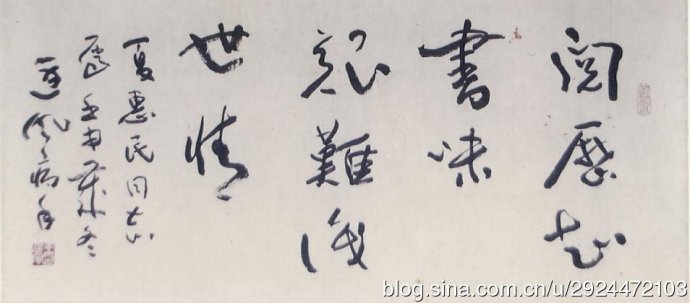 閱歷知
書味
艱難識
世情
夏惠民同志
壬申 冬
病手
blog.sina.com.cn/u/2924472103